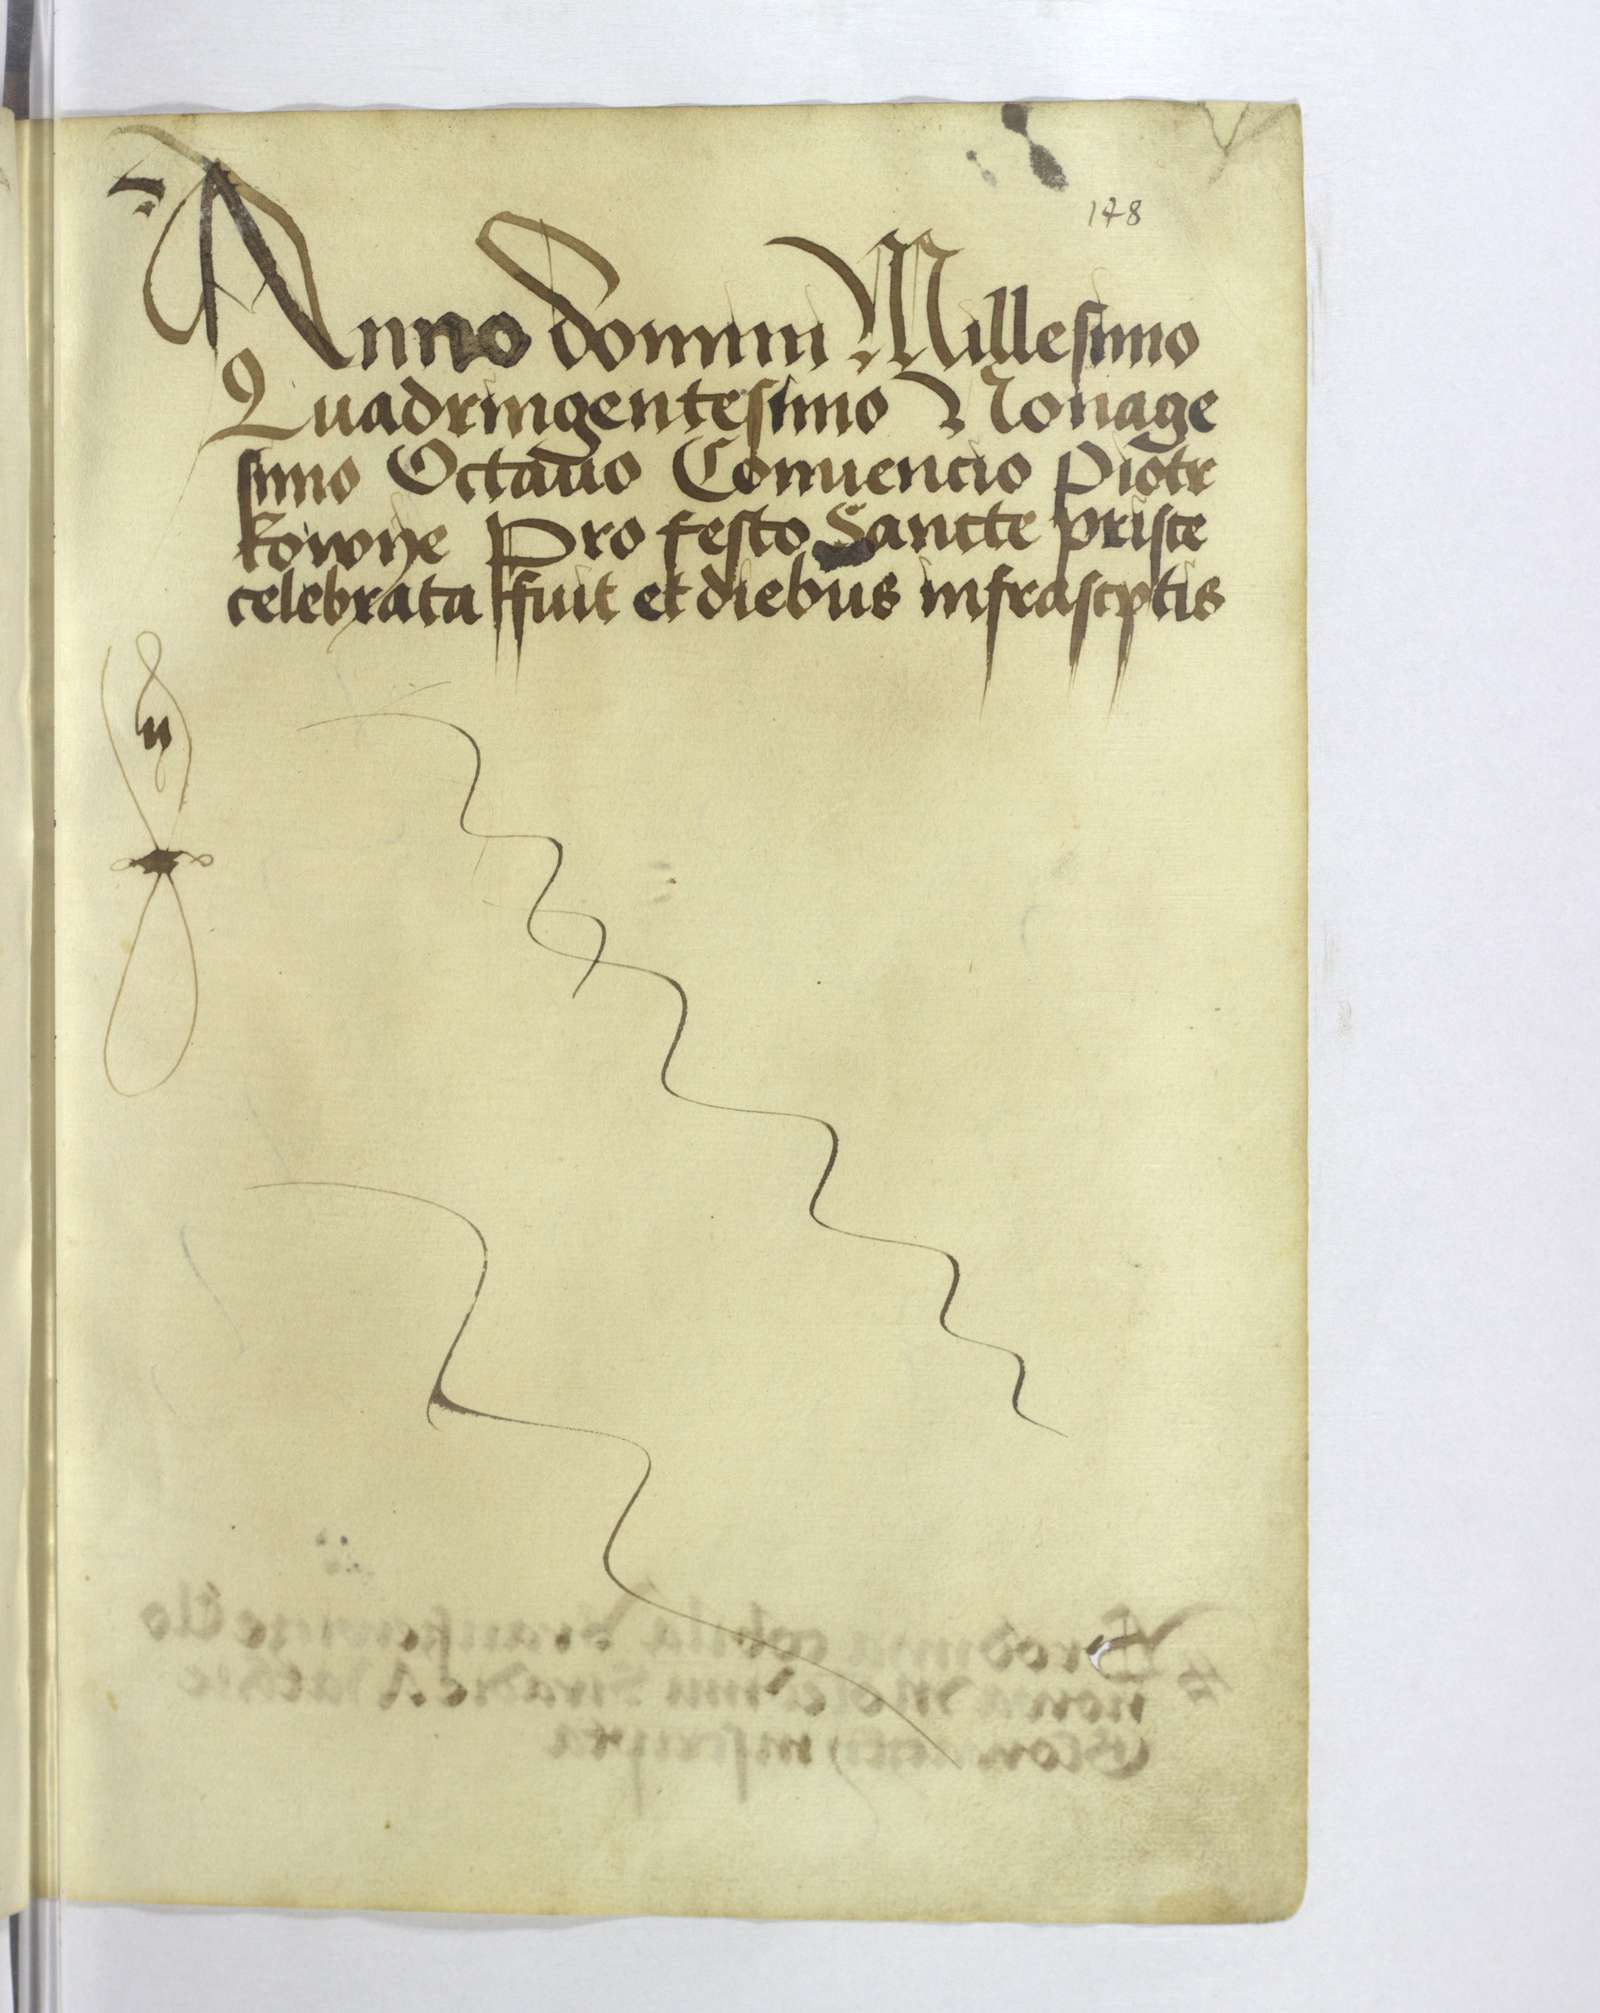 178
Anno domini Millesimo
Quadringentesimo Nonage
simo Octauo Conuencio Piotr
kowye Pro festo Sancte prisce
celebrata ffuit et diebus infrascptis
ij